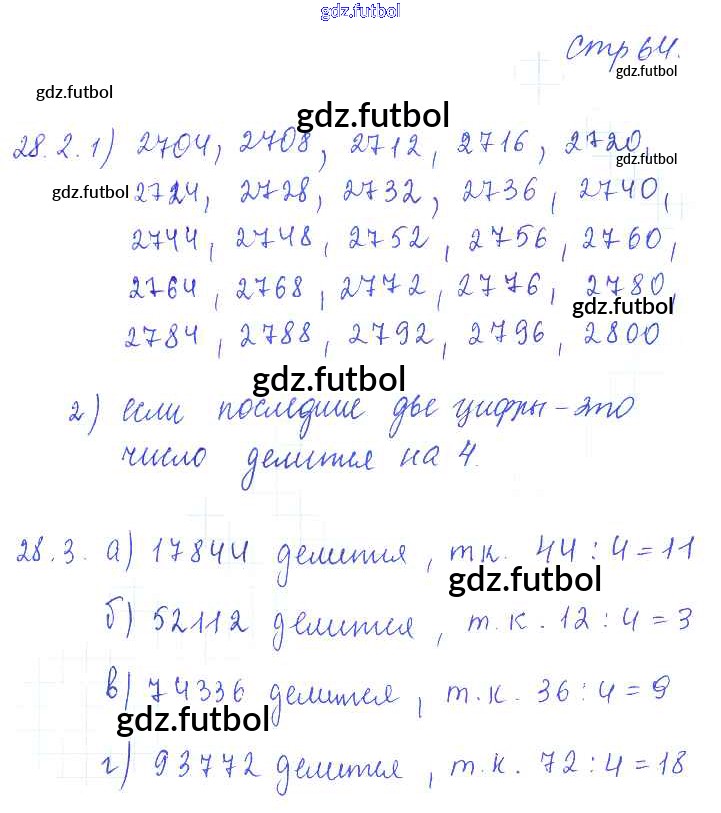 gdz.futbol
Стр 64.
gdz.futbol
gdz.futbol
gdz.futbol
28.2.1) 2704, 2708, 2712, 2716, 2720,
gdz.futbol
gdz.futbol
2724, 2728, 2732, 2736, 2740,
2744, 2748, 2752, 2756, 2760,
2764, 2768, 2772, 2776, 2780,
gdz.futbol
2784, 2788, 2792, 2796, 2800
gdz.futbol
2) если последние две цифры - это
число делится на 4.
28.3. а) 17844 делится, т.к. 44 : 4 = 11
gdz.futbol
б) 52112 делится, т.к. 12 : 4 = 3
в) 74336 делится, т.к. 36 : 4 = 9
gdz.futbol
г) 93772 делится, т.к. 72 : 4 = 18